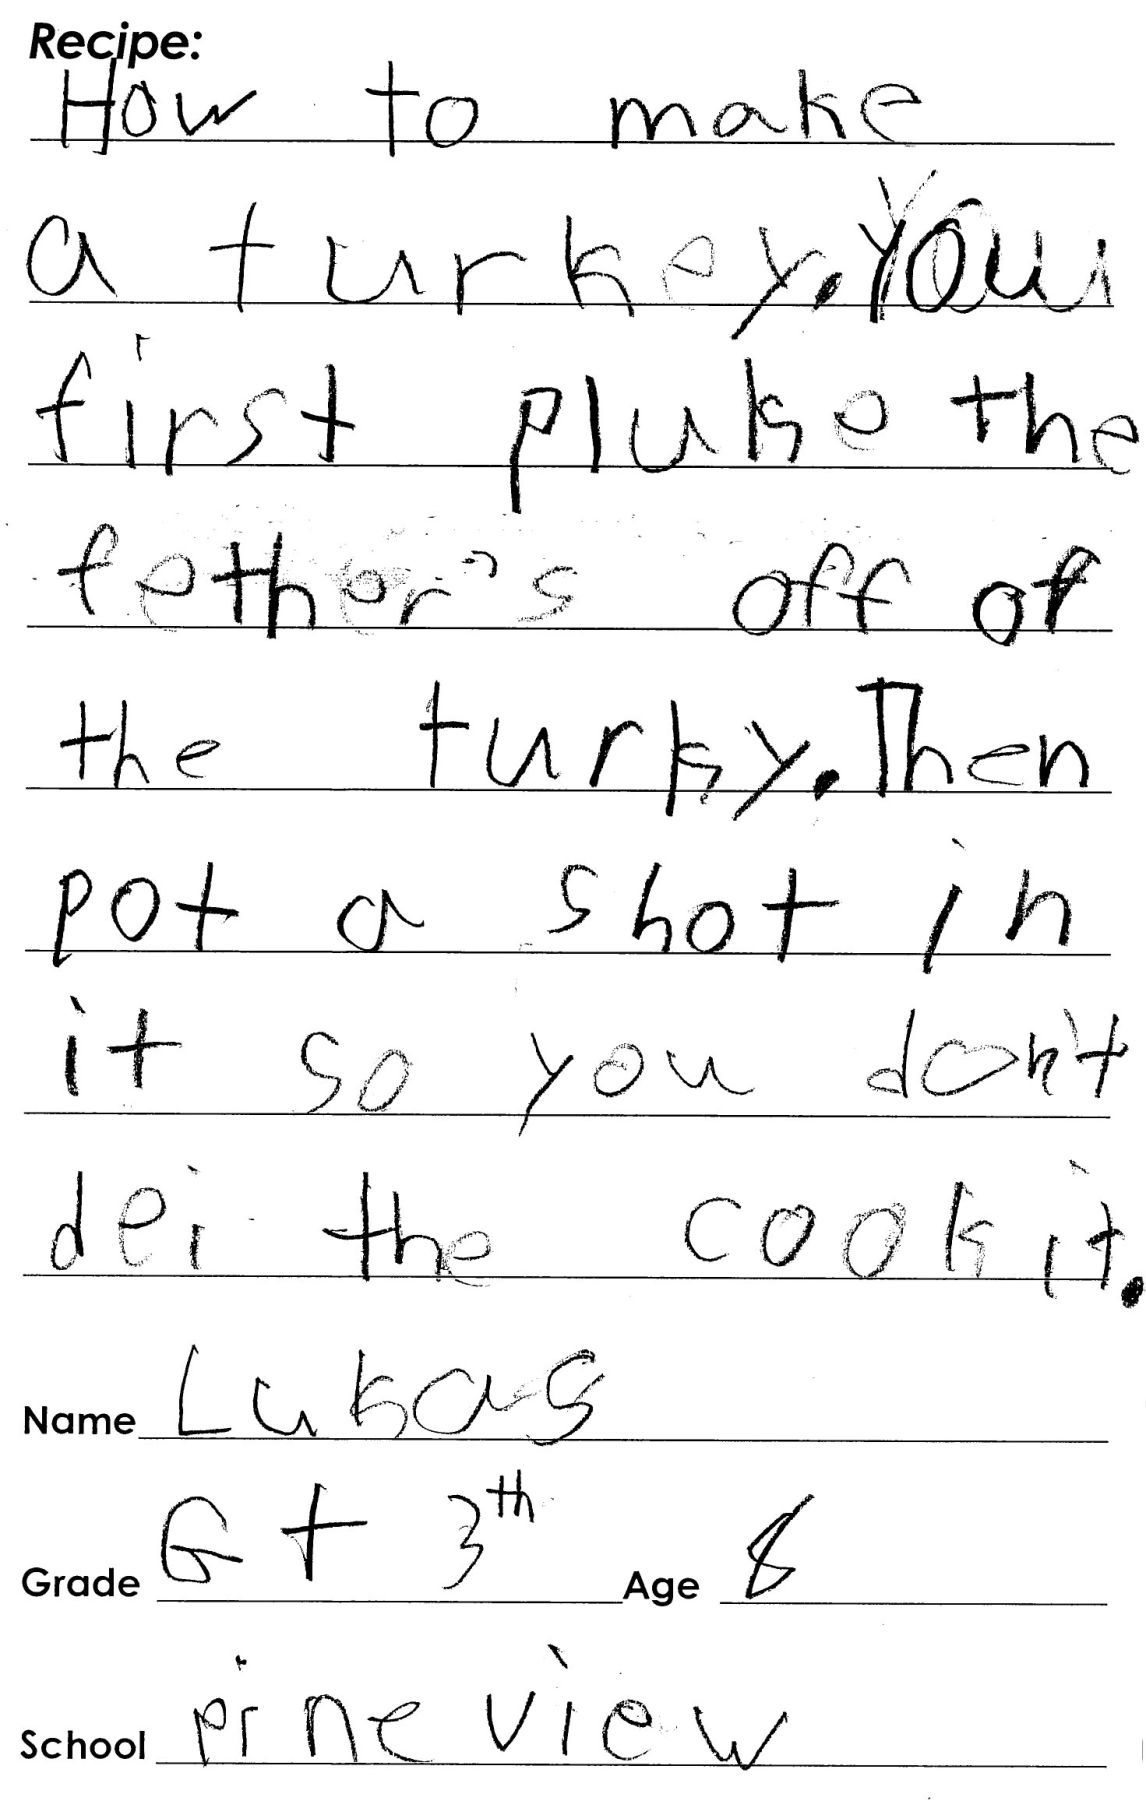 Recipe:
How to make
a turkey. You
first pluke the
fether's off of
the turky. Then
pot a shot in
it so you don't
dei the cook it.
Name Lukas
Grade Gt 3th Age 8
School pine view